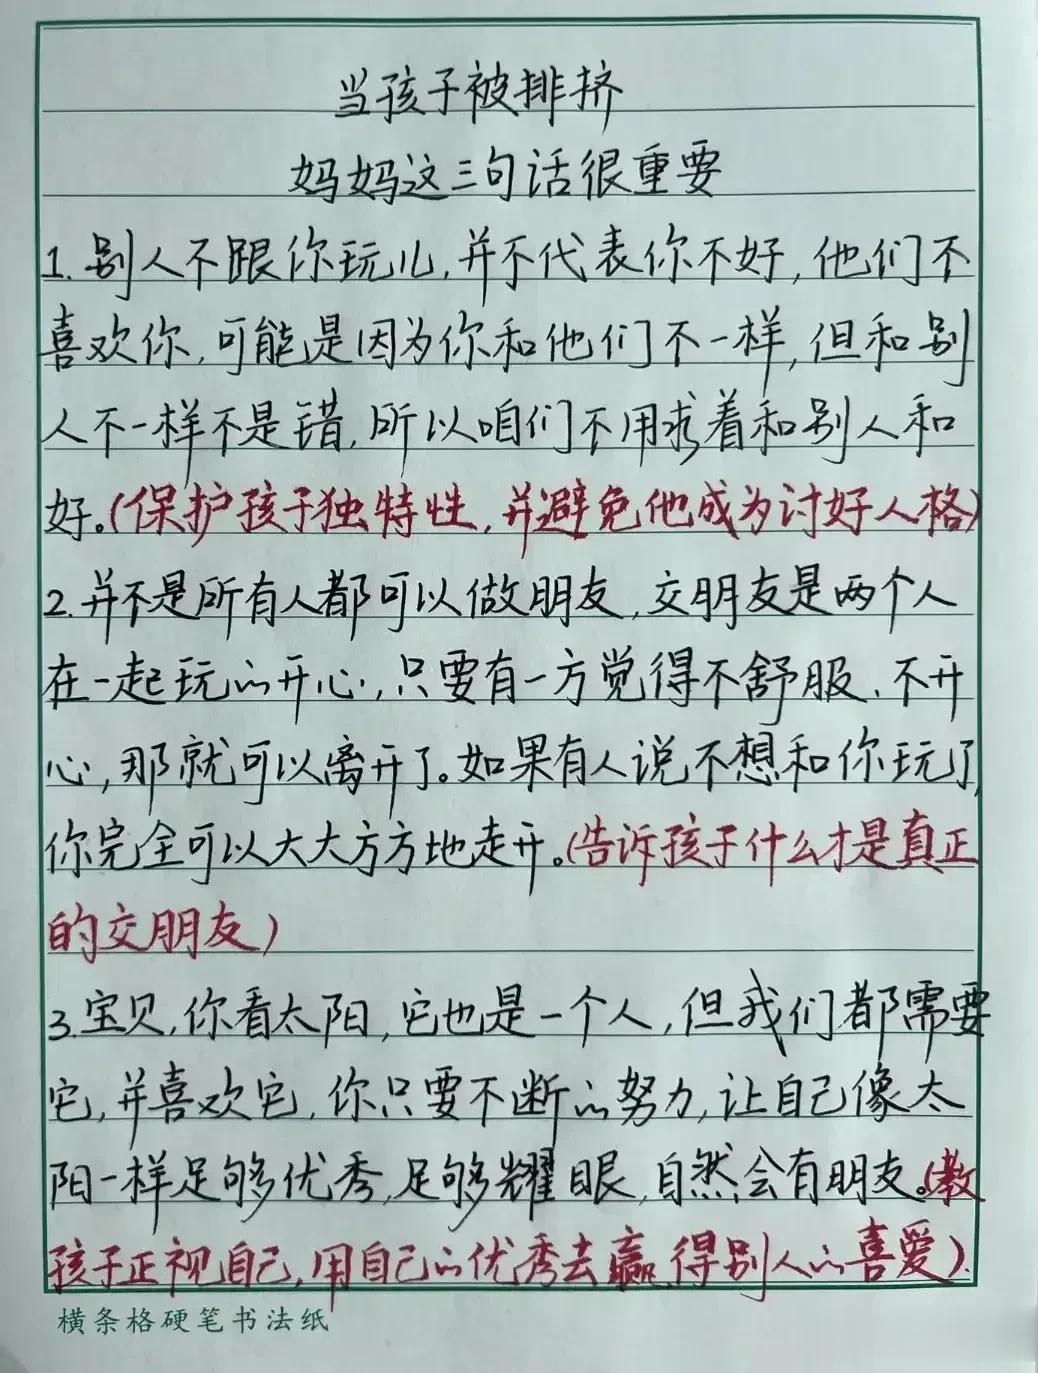 当孩子被排挤
妈妈这三句话很重要
1.别人不跟你玩儿,并不代表你不好,他们不
喜欢你,可能是因为你和他们不一样,但和别
人不一样不是错,所以咱们不用求着和别人和
好。(保护孩子独特性,并避免他成为讨好人格)
2.并不是所有人都可以做朋友,交朋友是两个人
在一起玩的开心,只要有一方觉得不舒服、不开
心,那就可以离开了。如果有人说不想和你玩了,
你完全可以大大方方地走开。(告诉孩子什么才是真正
的交朋友)
3.宝贝,你看太阳,它也是一个人,但我们都需要
它,并喜欢它,你只要不断的努力,让自己像太
阳一样足够优秀,足够耀眼,自然会有朋友。(教
孩子正视自己,用自己的优秀去赢得别人的喜爱).
横条格硬笔书法纸